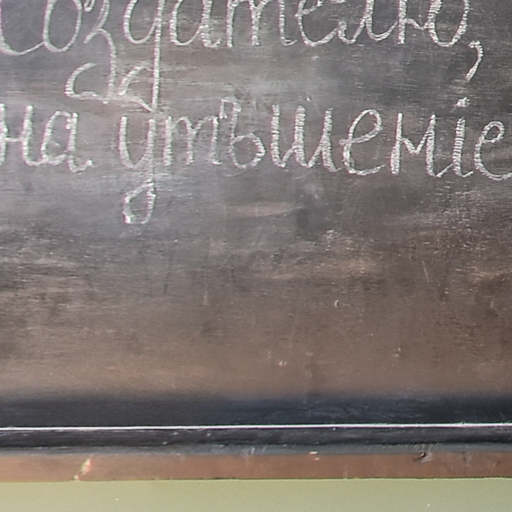 Создателю,
на утѣшеніе